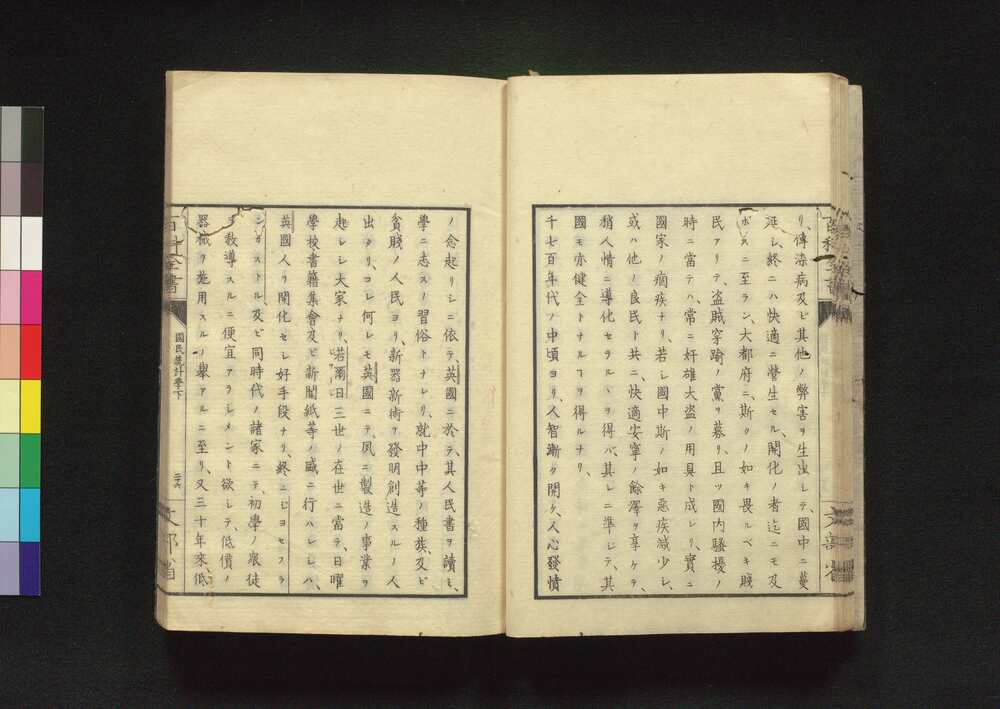 リ、傳染病及ビ其他ノ弊害ヲ生出シテ、國中ニ蔓
延シ、終ニハ快適ニ營生セル、開化ノ者迄ニモ及
ボスニ至ラン、大都府ニ、斯クノ如キ畏ルベキ賤
民アリテ、盗賊穿踰ノ黨ヲ募リ、且ツ國内騒擾ノ
時ニ當テハ、常ニ奸雄大盗ノ用具ト成レリ、實ニ
國家ノ痼疾ナリ、若シ國中斯ノ如キ惡疾減少シ、
或ハ他ノ良民ト共ニ、快適安寧ノ餘澤ヲ享ケテ、
稍人情ニ導化セラルヽヲ得バ、其レニ準シテ、其
國モ亦健全トナルヿヲ得ルナリ、
千七百年代ノ中頃ヨリ、人智漸ク開ケ、人心發憤
ノ念起リシニ依テ、英國ニ於テ、其人民書ヲ讀ミ、
學ニ志スノ習俗トナレリ、就中中等ノ種族、及ビ
貧賤ノ人民ヨリ、新器新術ヲ發明創造スルノ人
出タリ、コレ何レモ英國ニテ、夙ニ製造ノ事業ヲ
起シシ大家ナリ、若爾日三世ノ在世ニ當テ、日曜
學校書籍集會及ビ新聞紙等ノ盛ニ行ハレシハ、
英國人ヲ開化セシ好手段ナリ、終ニビヨセフラ
ンカストル、及ビ同時代ノ諸家ニテ、初學ノ衆徒
ヲ教導スルニ便宜アラシメント欲シテ、低價ノ
器械ヲ施用スルノ擧アルニ至リ、又三十年來低
百科全書
國民統計學下
二十六
文部省